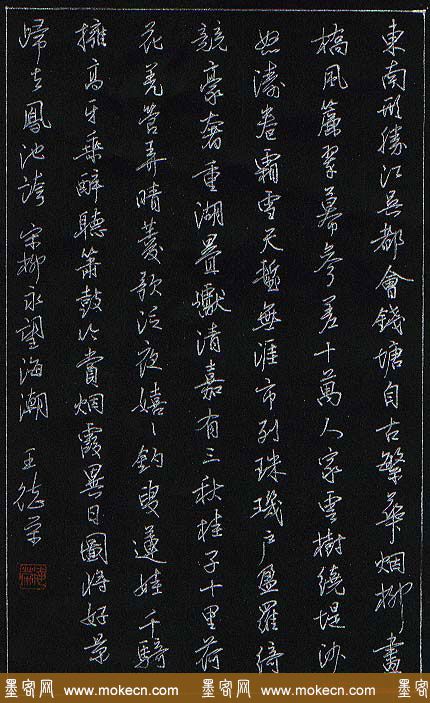 東南形勝江吳都會錢塘自古繁華烟柳畫
橋風簾翠幕參差十萬人家雲樹繞堤沙
怒濤卷霜雪天塹無涯市列珠璣戶盈羅綺
競豪奢重湖疊巘清嘉有三秋桂子十里荷
花羌管弄晴菱歌泛夜嬉〻釣叟蓮娃千騎
擁高牙乘醉聽簫鼓吟賞烟霞異日圖將好景
歸去鳳池誇 宋柳永望海潮 王德荣
墨客网 www.mokecn.com 墨客网 www.mokecn.com 墨客网